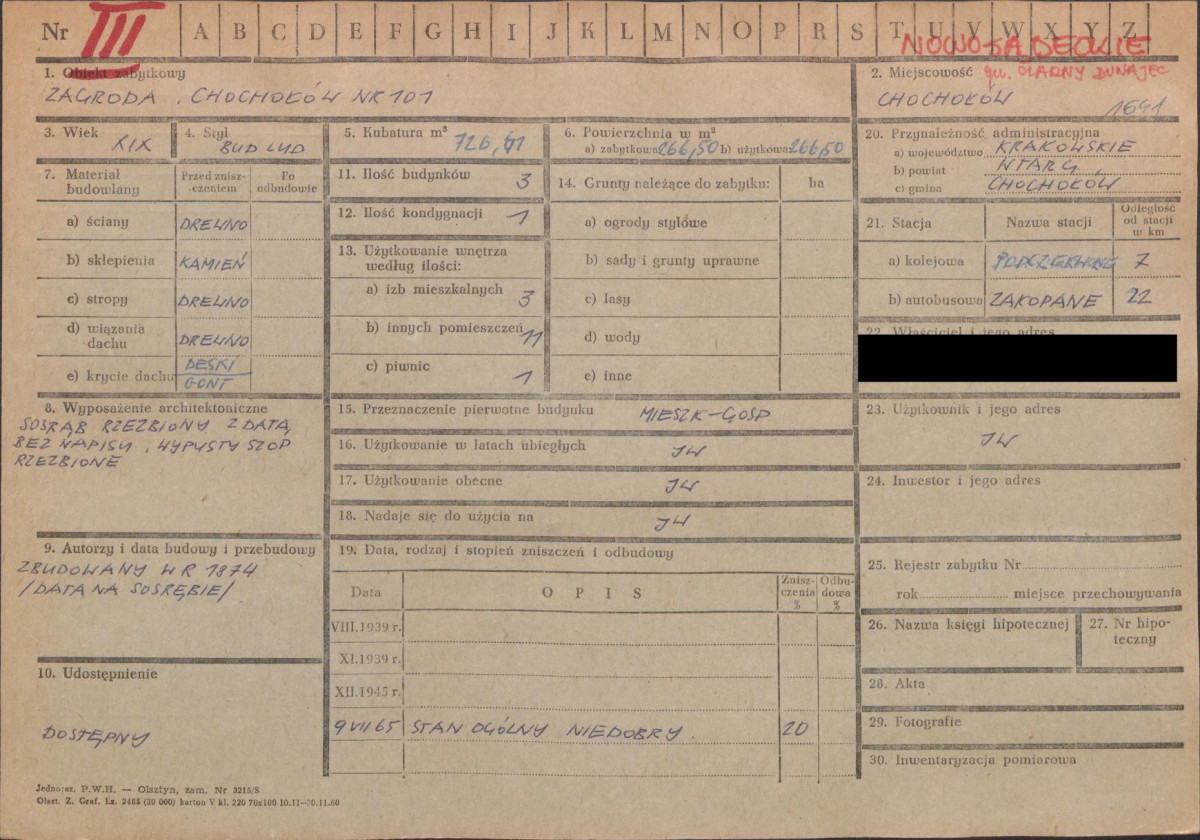 Nr III A B C D E F G H I J K L M N O P R S T U V W X Y Z
NOWOSĄDECKIE
1. Obiekt zabytkowy
ZAGRODA, CHOCHOŁÓW NR 101
2. Miejscowość gw. CZARNY DUNAJEC
CHOCHOŁÓW 1641
3. Wiek
XIX
4. Styl
BUD LUD
5. Kubatura m³
6. Powierzchnia w m²
a) zabytkowa 266,50 b) użytkowa 266,50
7. Materiał budowlany
Przed zniszczeniem
Po odbudowie
a) ściany DREWNO
b) sklepienia KAMIEŃ
c) stropy DREWNO
d) wiązania dachu DREWNO
e) krycie dachu DESKI
GONT
8. Wyposażenie architektoniczne
SOSRĄB RZEZBIONY Z DATĄ
BEZ NAPISU, WYPUSTY SZOP
RZEZBIONE
9. Autorzy i data budowy i przebudowy
ZBUDOWANY W R 1874
/DATA NA SOSRĘBIE/
10. Udostępnienie
DOSTĘPNY
11. Ilość budynków 3
12. Ilość kondygnacji 1
13. Użytkowanie wnętrza
według ilości:
a) izb mieszkalnych 3
b) innych pomieszczeń 11
c) piwnic 1
14. Grunty należące do zabytku: ha
a) ogrody stylowe
b) sady i grunty uprawne
c) lasy
d) wody
e) inne
15. Przeznaczenie pierwotne budynku MIESZK-GOSP
16. Użytkowanie w latach ubiegłych JW
17. Użytkowanie obecne JW
18. Nadaje się do użycia na JW
19. Data, rodzaj i stopień zniszczeń i odbudowy
Data OPIS Zniszczenia % Odbudowa %
VIII.1939 r.
XI.1939 r.
XII.1945 r.
9 VII 65 STAN OGÓLNY NIEDOBRY. 20
20. Przynależność administracyjna
a) województwo KRAKOWSKIE
b) powiat N TARG
c) gmina CHOCHOŁÓW
21. Stacja Nazwa stacji Odległość od stacji w km
a) kolejowa PODCZERWONE 7
b) autobusowa ZAKOPANE 22
22. Właściciel i jego adres
23. Użytkownik i jego adres
JW
24. Inwestor i jego adres
25. Rejestr zabytku Nr
rok miejsce przechowywania
26. Nazwa księgi hipotecznej
27. Nr hipoteczny
28. Akta
29. Fotografie
30. Inwentaryzacja pomiarowa
Jednoraz. P.W.H. — Olsztyn, zam. Nr 3215/S
Olszt. Z. Graf. Lz. 2488 (30 000) karton V kl. 220 70x100 10.11—30.11.60